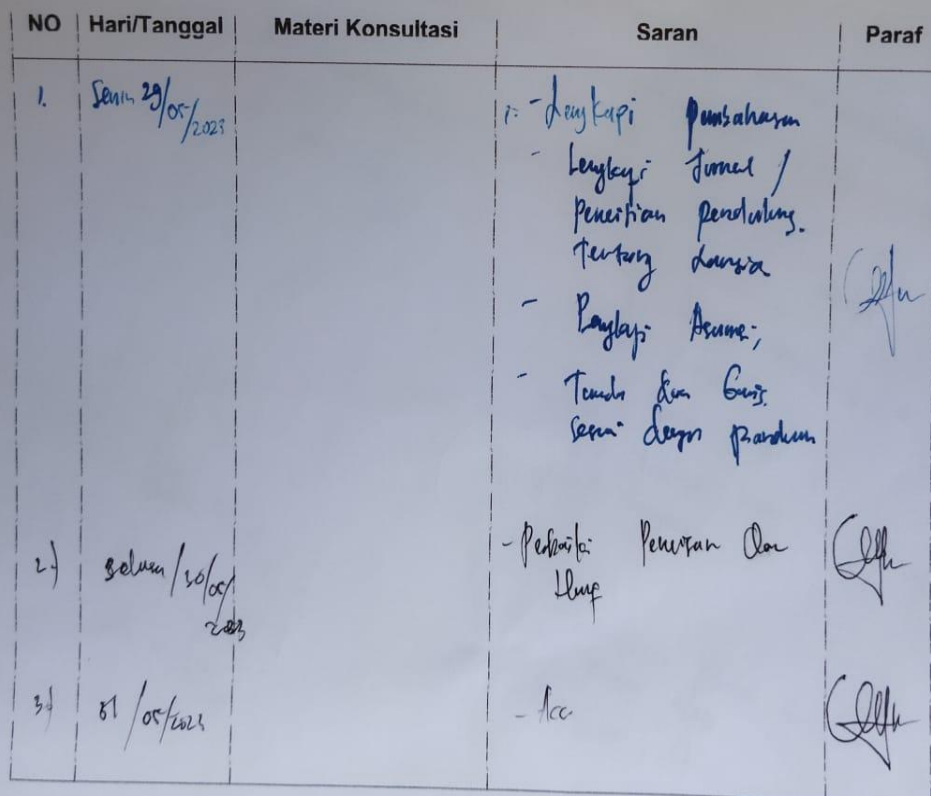 NO Hari/Tanggal Materi Konsultasi Saran Paraf
1. Senin 29/05/2023 - Lengkapi Pembahasan
- Lengkapi Jurnal /
Penelitian pendukung.
Tentang Lansia
- Lengkapi Asumsi,
- Tanda dan Garis
sesuai dengan panduan
2.) Selasa/30/05/2023 - Perbaiki Penulisan dan
Huruf
3.) 31/05/2023 - Acc